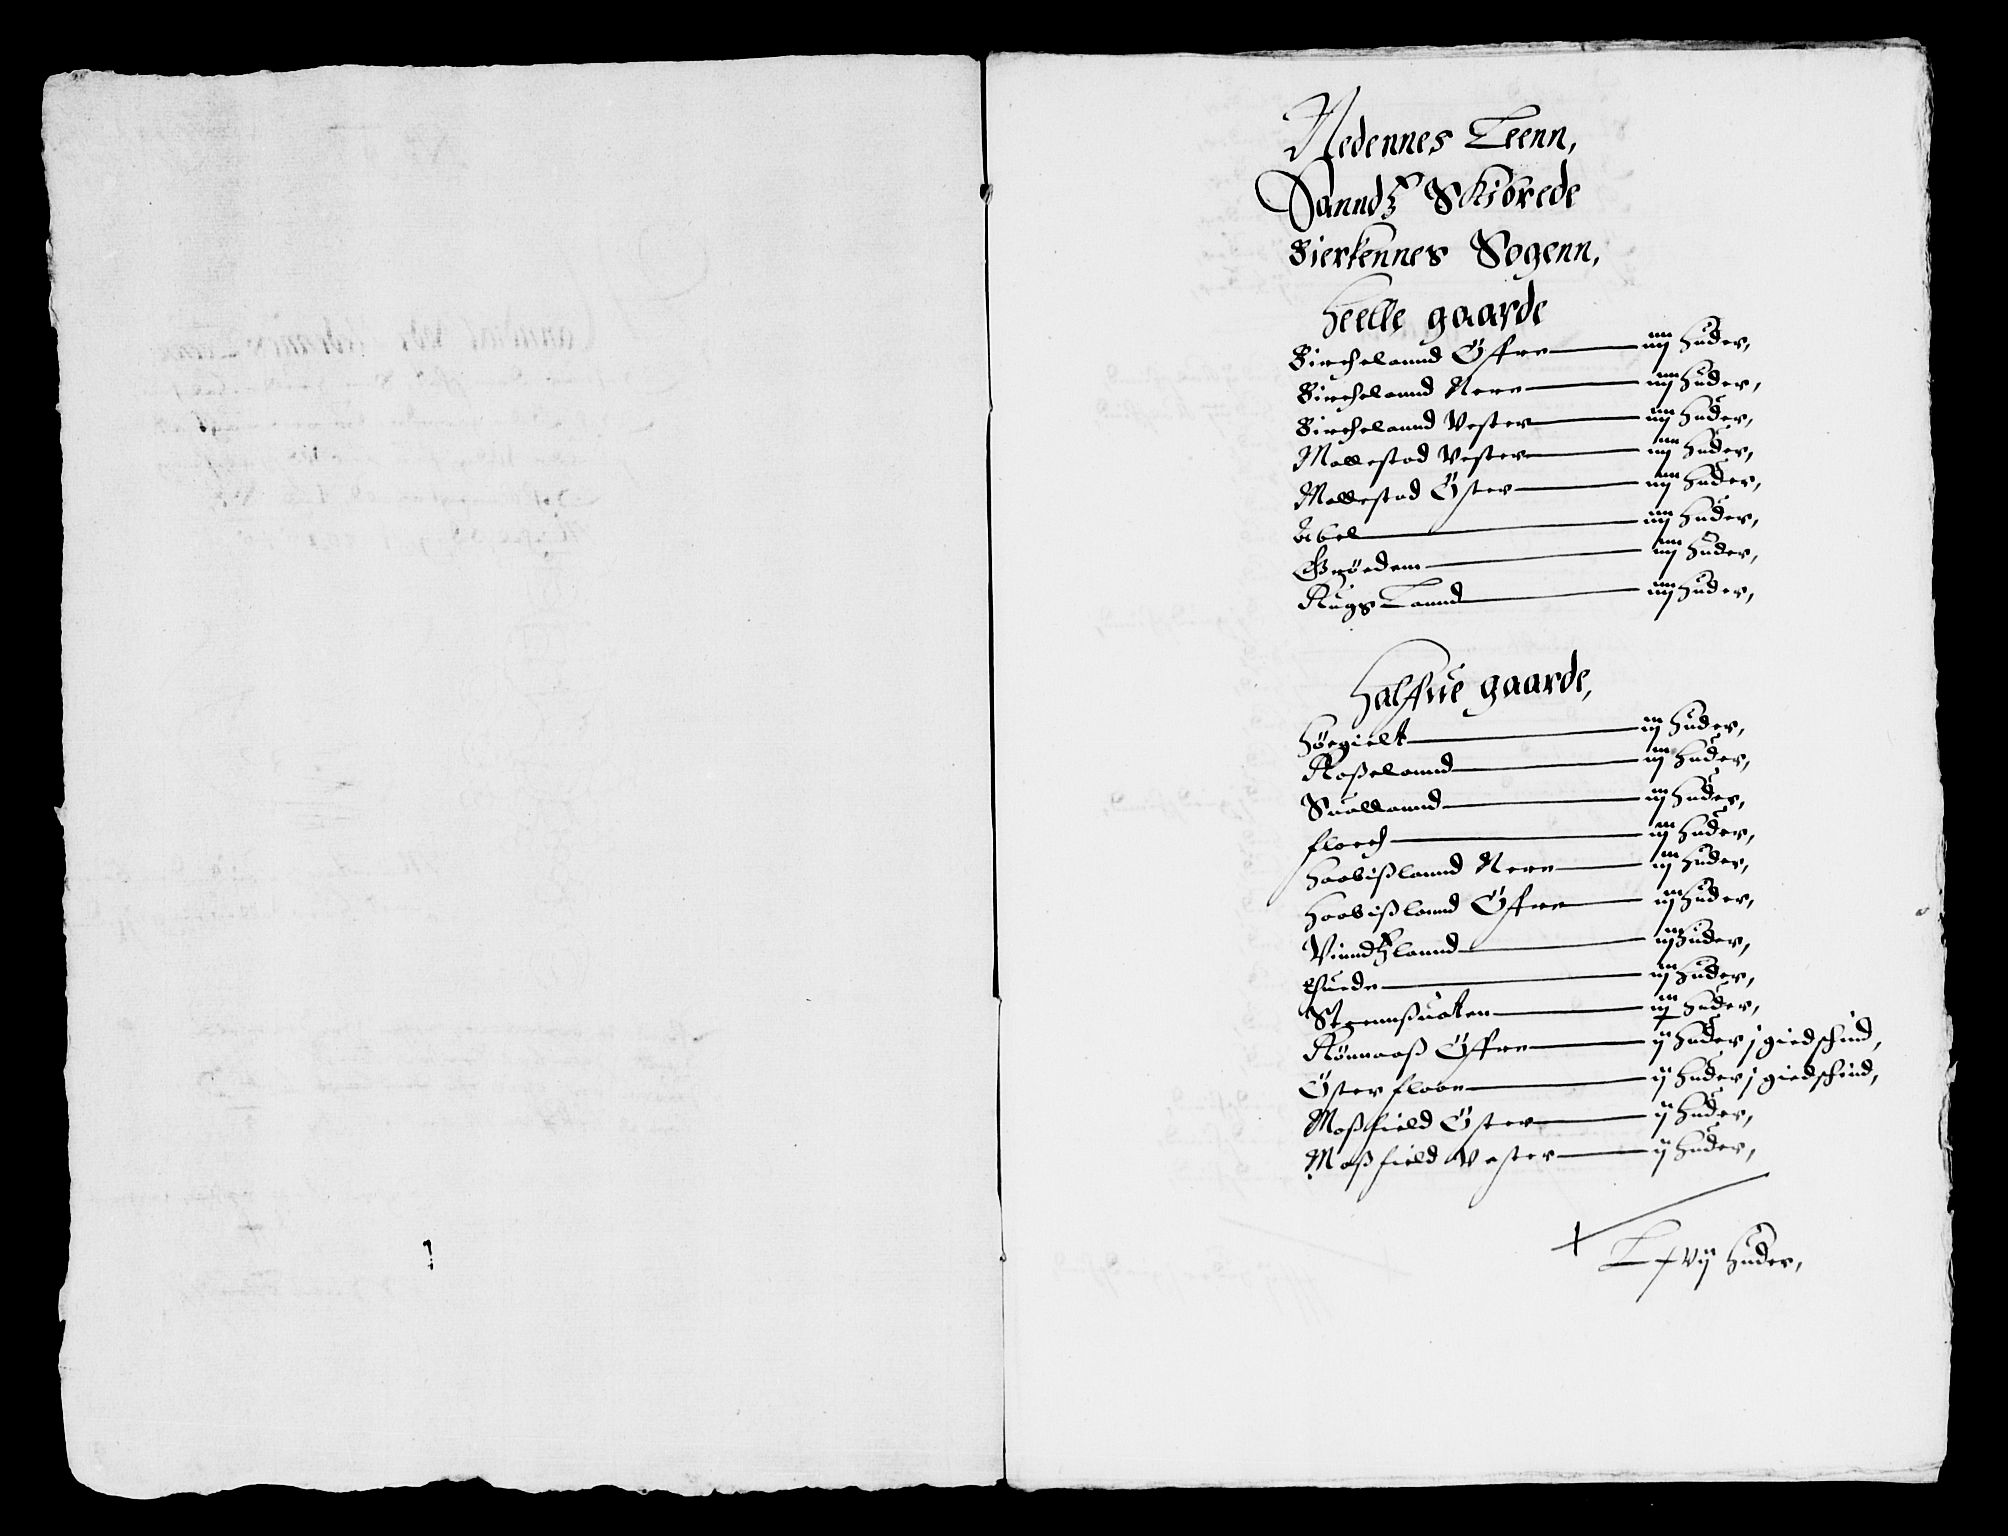 Nedennes Leenn,
Sanndz Skibrede
Bierkennes Sogenn,
Heelle gaarde
Birchelannd Öfre iiij huder,
Birchelannd Nere iiij huder,
Birchelannd Vester iiij huder,
Mollestad Vester iiij huder,
Mollestad Öster iiij huder,
Abel iiij huder,
Grödem iiij huder,
Rugs Lannd iiij huder,
Halffue gaarde,
Höegielt iij huder,
Roßelannd iij huder,
Suallannd iij huder,
floech iij huder,
Haabißlannd Nere iij huder,
Haabißlannd Öfre iij huder,
Vinndzlannd iij huder,
Tuede iij huder,
Stennßuaten iij huder,
Rönnaaß Öffre ij huder j giedschind,
Öster floen ij huder j giedschind,
Moßfield Öster ij huder,
Moßfield Vester ij huder,
Lxvij huder,